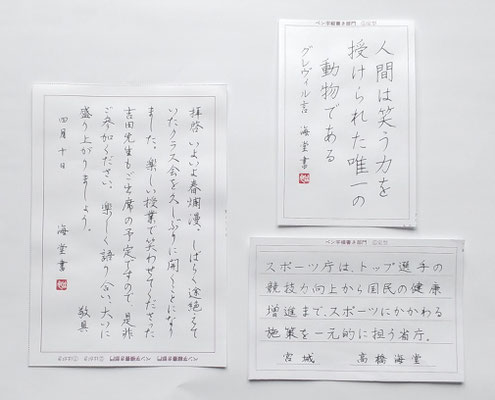 拝啓 いよいよ春爛漫、しばらく途絶えて
いたクラス会を久しぶりに開くことになり
ました。楽しい授業で笑わせてくださった
吉田先生もご出席の予定ですので、是非
ご参加ください。楽しく語り合い、大いに
盛り上がりましょう。
敬具
四月十日
海堂書
ペン字縦書き部門
人間は笑う力を
授けられた唯一の
動物である
グレヴィル言 海堂書
ペン字横書き部門
スポーツ庁は、トップ選手の
競技力向上から国民の健康
増進まで、スポーツにかかわる
施策を一元的に担う省庁。
宮城 高橋海堂